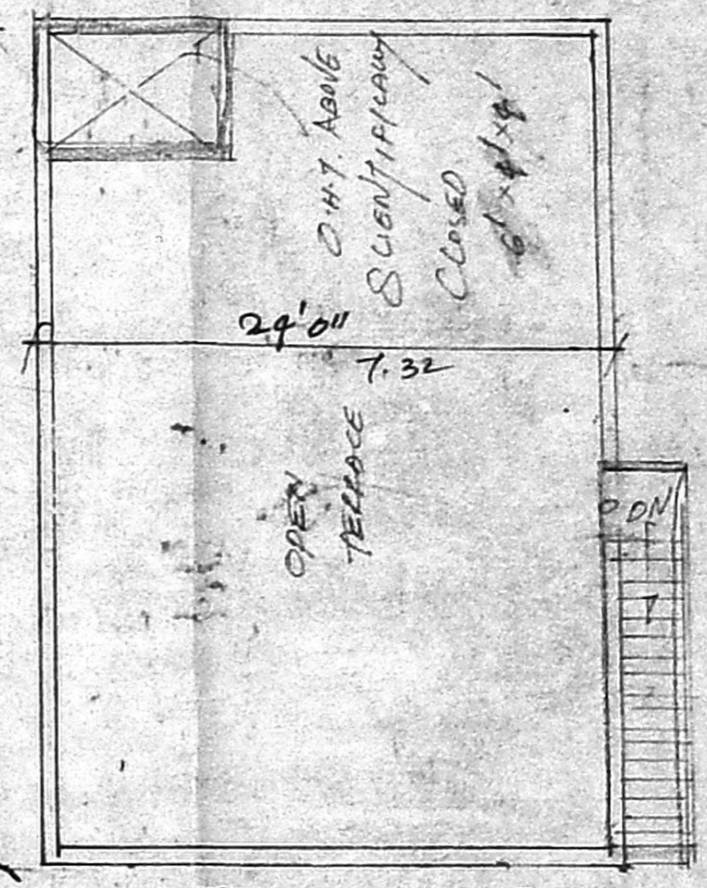 O.H.T. ABOVE
SCIENTIFICALLY
CLOSED
24'0"
7.32
OPEN
TERRACE
DN